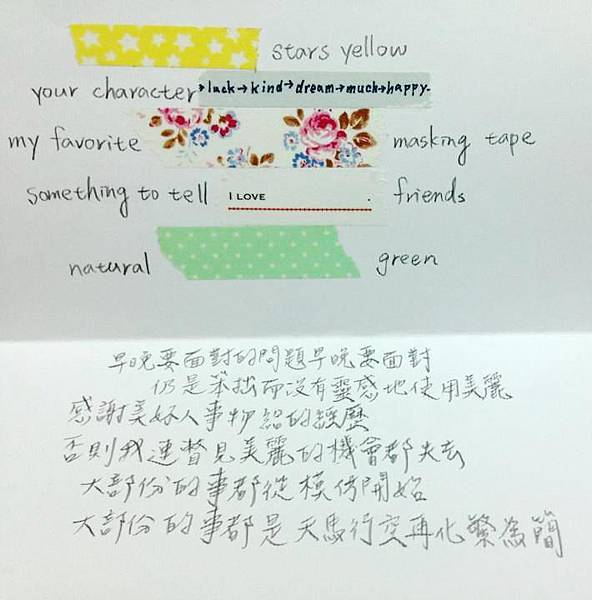 stars yellow
your character → luck → kind → dream → much → happy -
my favorite masking tape
something to tell I LOVE . friends
natural green
早晚要面對的問題早晚要面對
仍是笨拙而沒有靈感地使用美麗
感謝美好人事物給的經歷
否則我連瞥見美麗的機會都失去
大部份的事都從模仿開始
大部份的事都是天馬行空再化繁為簡